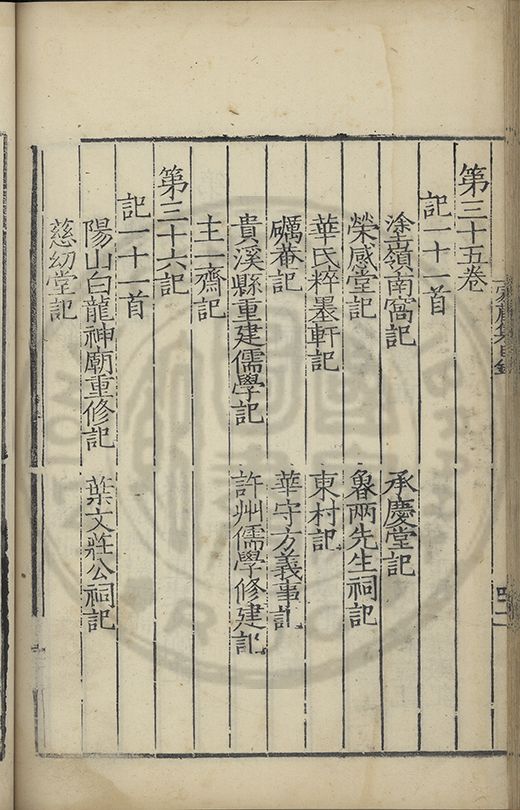 第三十五卷
記一十一首
塗嶺南窩記　承慶堂記
榮感堂記　魯兩先生祠記
華氏粹墨軒記　東村記
礪菴記　華守方義事記
貴溪縣重建儒學記　許州儒學修建記
主一齋記
第三十六記
記一十一首
陽山白龍神廟重修記　葉文莊公祠記
慈幼堂記